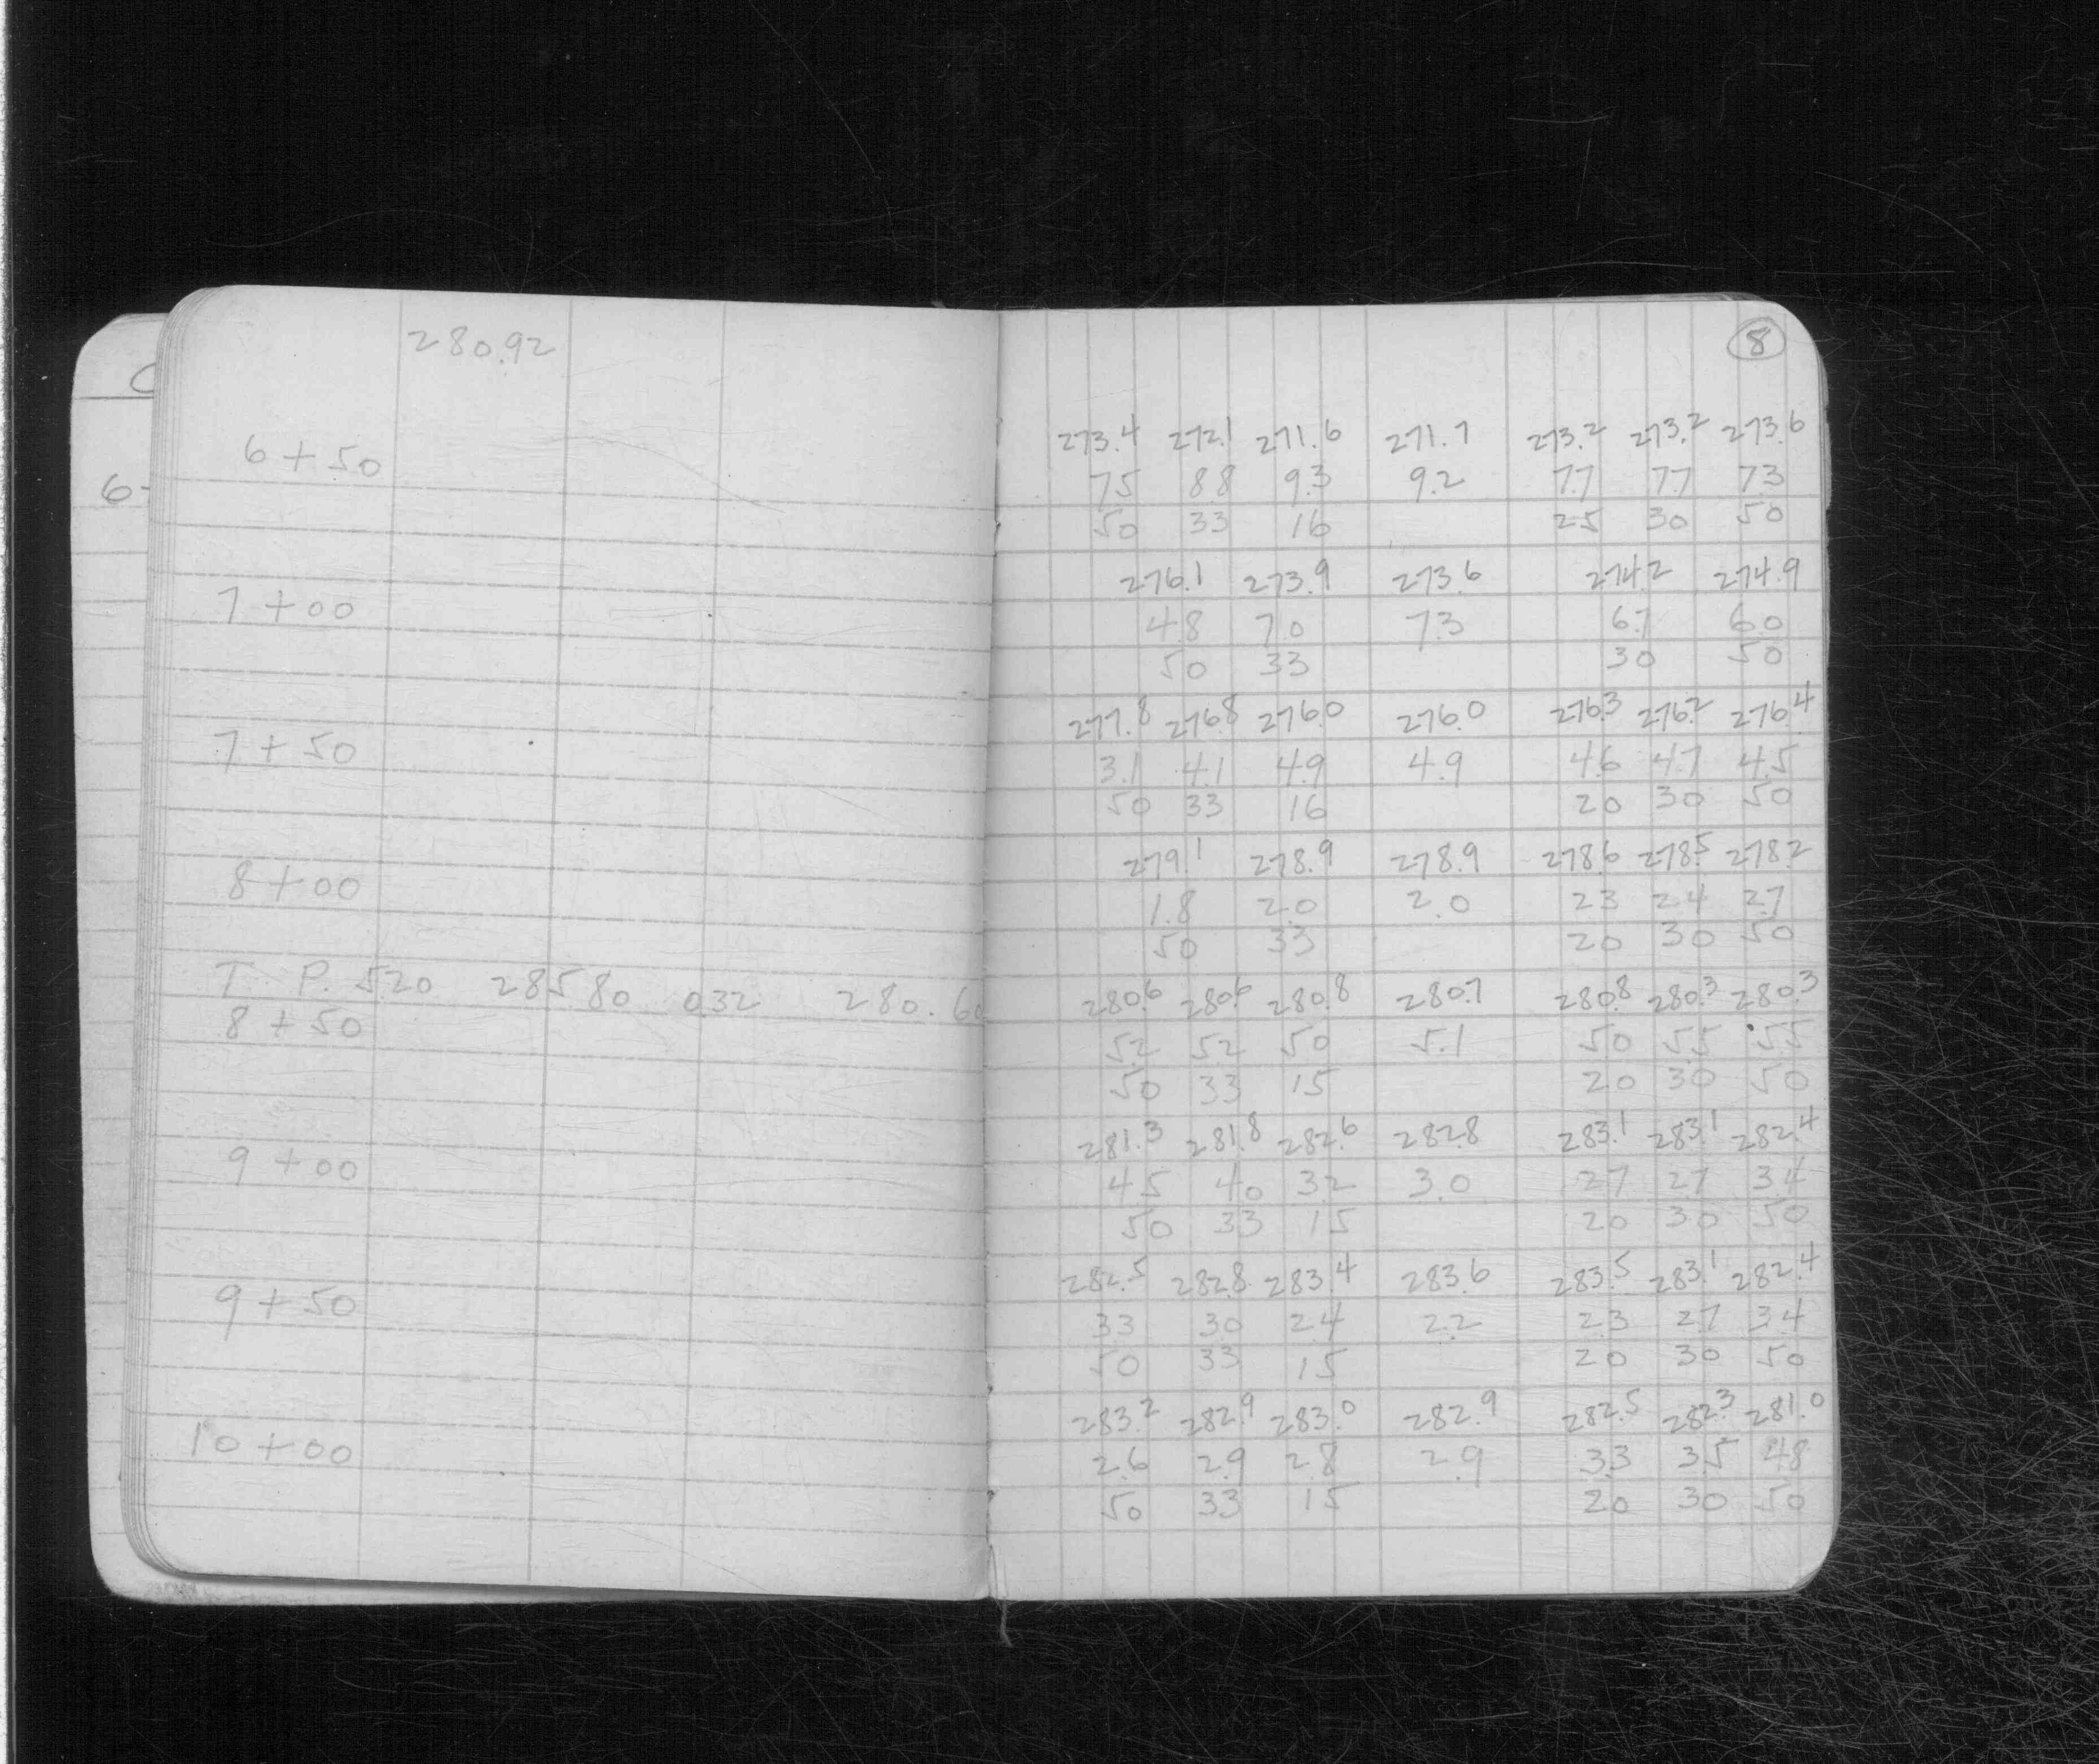 280.92
8
273.4 272.1 271.6 271.7 273.2 273.2 273.6
6+50 7.5 8.8 9.3 9.2 7.7 7.7 7.3
6-
50 33 16 25 30 50
276.1 273.9 273.6 274.2 274.9
7+00 4.8 7.0 7.3 6.7 6.0
50 33 30 50
277.8 276.8 276.0 276.0 276.3 276.2 276.4
7+50 3.1 4.1 4.9 4.9 4.6 4.7 4.5
50 33 16 20 30 50
279.1 278.9 278.9 278.6 278.5 278.2
8+00 1.8 2.0 2.0 2.3 2.4 2.7
50 33 20 30 50
T. P. 5.20 285.80 0.32 280.60 280.6 280.6 280.8 280.7 280.8 280.3 280.3
8+50 5.2 5.2 5.0 5.1 5.0 5.5 5.5
50 33 15 20 30 50
281.3 281.8 282.6 282.8 283.1 283.1 282.4
9+00 4.5 4.0 3.2 3.0 2.7 2.7 3.4
50 33 15 20 30 50
282.5 282.8 283.4 283.6 283.5 283.1 282.4
9+50 3.3 3.0 2.4 2.2 2.3 2.7 3.4
50 33 15 20 30 50
283.2 282.9 283.0 282.9 282.5 282.3 281.0
10+00 2.6 2.9 2.8 2.9 3.3 3.5 4.8
50 33 15 20 30 50